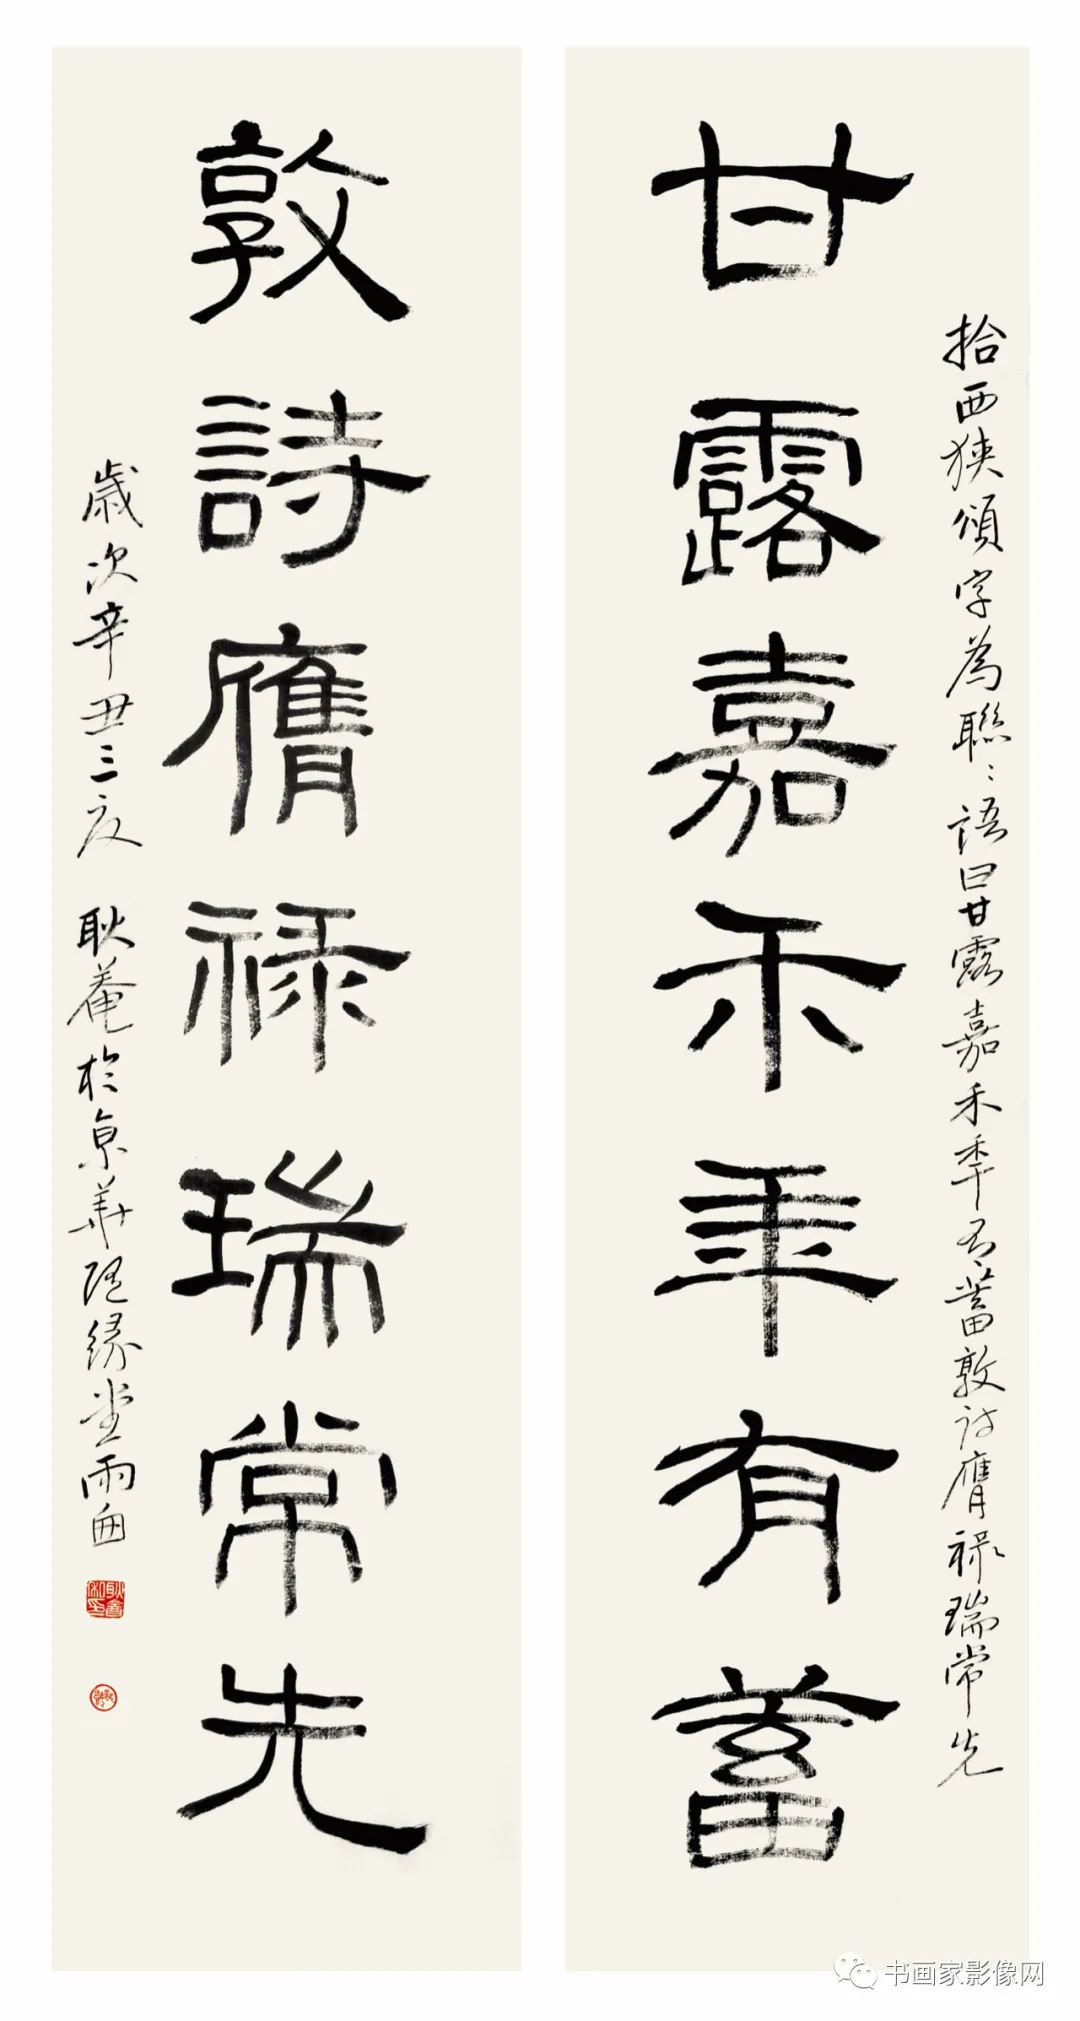 拾西狹頌字為聯〻語曰甘露嘉禾年有蓄敦詩膺祿瑞常先
甘露嘉禾年有蓄
敦詩膺祿瑞常先
歲次辛丑三夏 耿菴於京華隨緣堂雨窗
书画家影像网